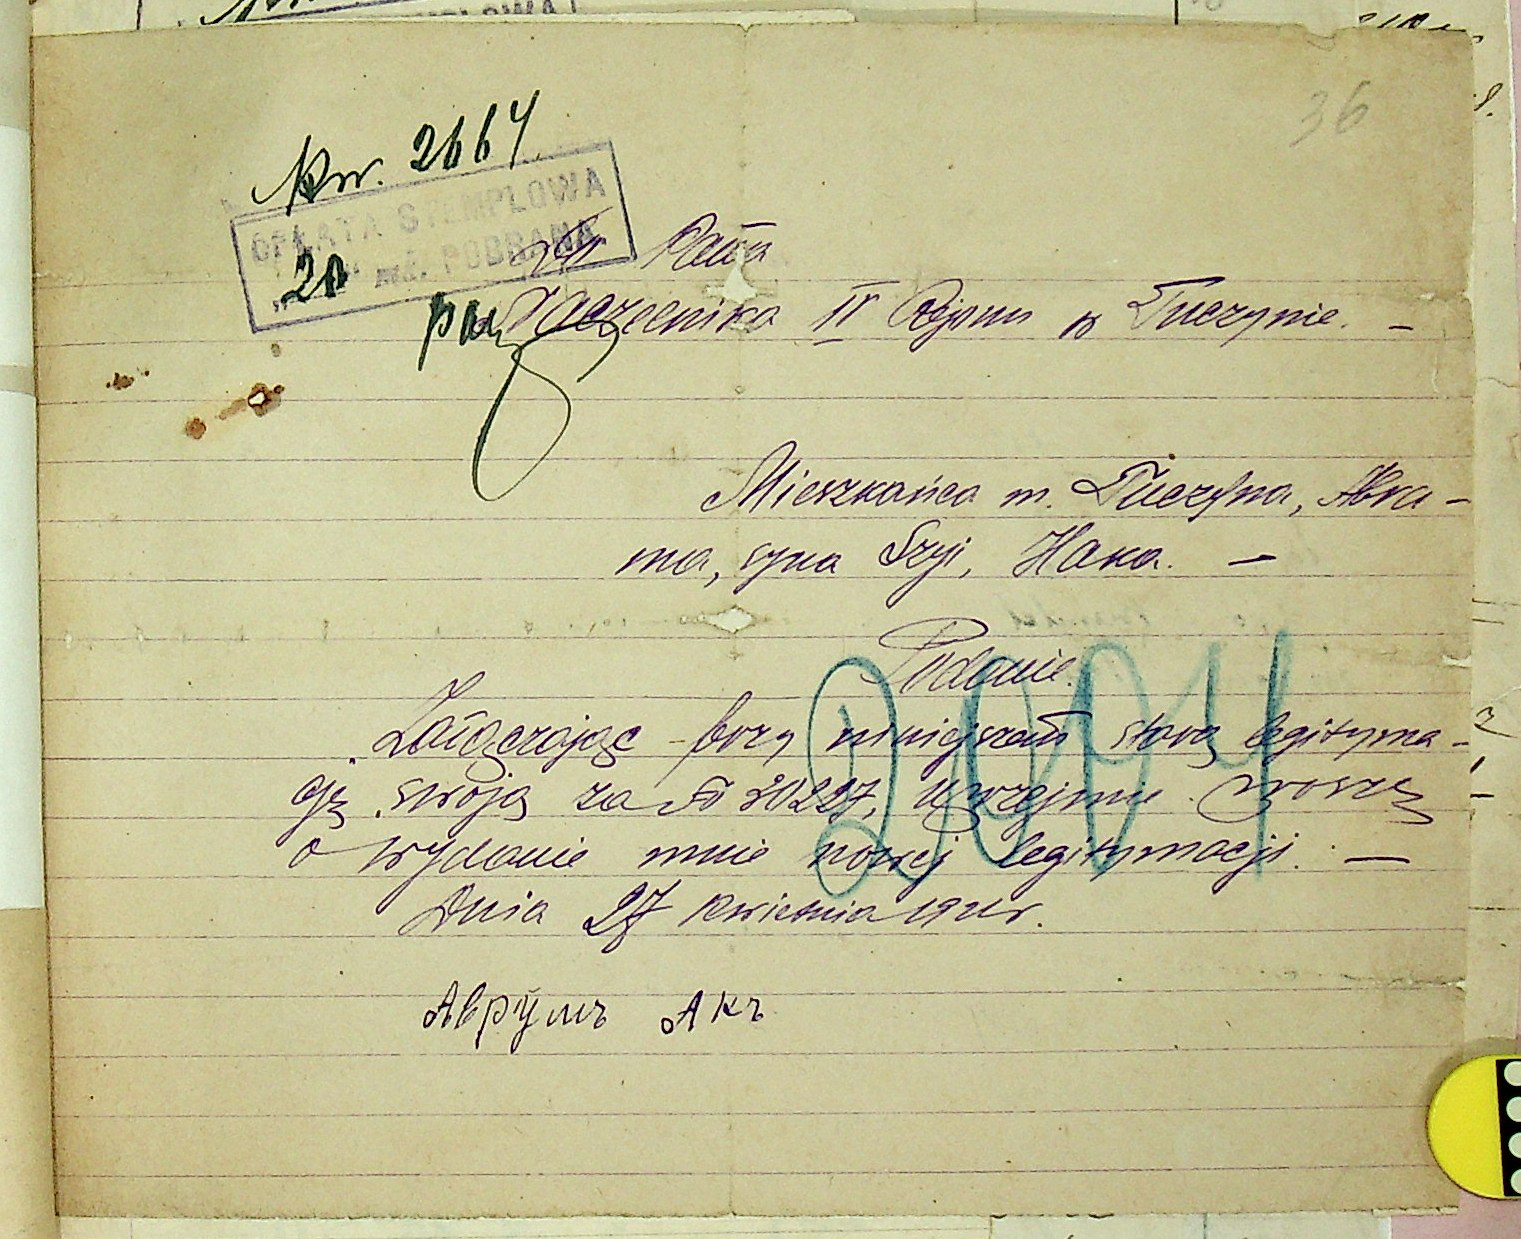 36
Kw. 2664
OPŁATA STEMPLOWA
20 mk. POBRANA
Do Pana
Naczelnika IV Rejonu w Tuczynie. –
Mieszkańca m. Tuczyna, Abra-
ma, syna Szyi, Haka. –
Podanie.
Załączając przy niniejszem starą legityma-
cję swoją za № 20227, uprzejmie proszę
o wydanie mnie nowej legitymacji. —
Dnia 27 kwietnia 1921 r.
Аврумъ Акъ